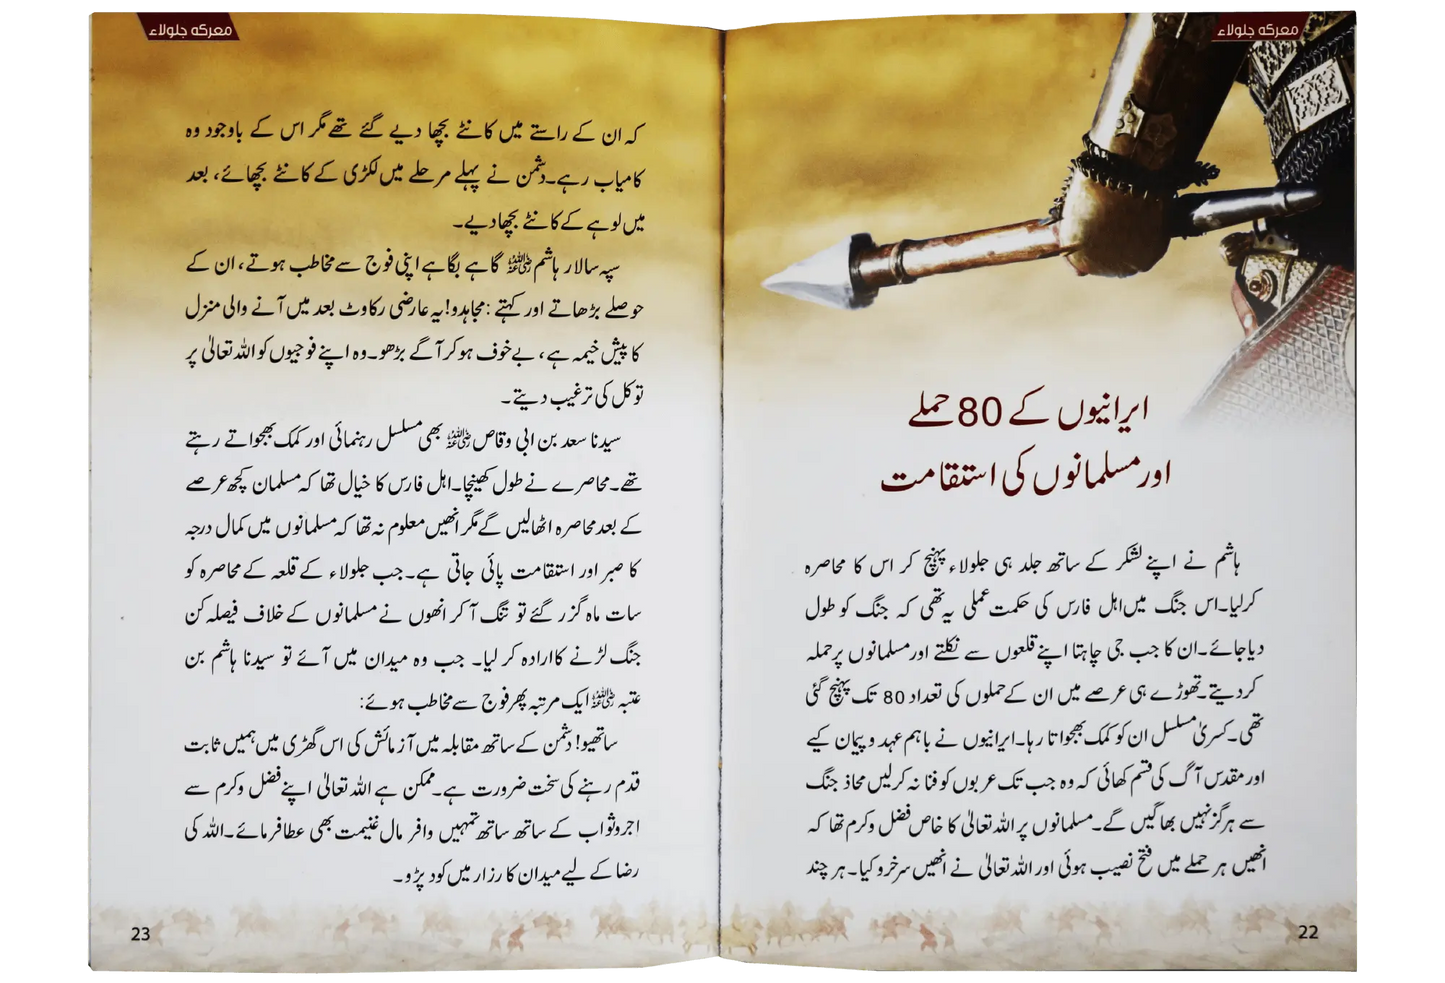 معرکہ جلولاء
ایرانیوں کے 80 حملے
اور مسلمانوں کی استقامت
ہاشم نے اپنے لشکر کے ساتھ جلد ہی جلولاء پہنچ کر اس کا محاصرہ
کرلیا۔ اس جنگ میں اہل فارس کی حکمت عملی یہ تھی کہ جنگ کو طول
دیا جائے۔ ان کا جب جی چاہتا اپنے قلعوں سے نکلتے اور مسلمانوں پر حملہ
کردیتے۔ تھوڑے ہی عرصے میں ان کے حملوں کی تعداد 80 تک پہنچ گئی
تھی۔ کسریٰ مسلسل ان کو کمک بھجواتا رہا۔ ایرانیوں نے باہم عہد و پیمان کیے
اور مقدس آگ کی قسم کھائی کہ وہ جب تک عربوں کو فنا نہ کرلیں محاذ جنگ
سے ہرگز نہیں بھاگیں گے۔ مسلمانوں پر اللہ تعالیٰ کا خاص فضل و کرم تھا کہ
انھیں ہر حملے میں فتح نصیب ہوئی اور اللہ تعالیٰ نے انھیں سرخرو کیا۔ ہر چند
22
معرکہ جلولاء
کہ ان کے راستے میں کانٹے بچھا دیے گئے تھے مگر اس کے باوجود وہ
کامیاب رہے۔ دشمن نے پہلے مرحلے میں لکڑی کے کانٹے بچھائے، بعد
میں لوہے کے کانٹے بچھا دیے۔
سپہ سالار ہاشم رضی اللہ عنہ گاہے بگاہے اپنی فوج سے مخاطب ہوتے، ان کے
حوصلے بڑھاتے اور کہتے: مجاہدو! یہ عارضی رکاوٹ بعد میں آنے والی منزل
کا پیش خیمہ ہے، بے خوف ہو کر آگے بڑھو۔ وہ اپنے فوجیوں کو اللہ تعالیٰ پر
توکل کی ترغیب دیتے۔
سیدنا سعد بن ابی وقاص رضی اللہ عنہ بھی مسلسل رہنمائی اور کمک بھجواتے رہتے
تھے۔ محاصرے نے طول کھینچا۔ اہل فارس کا خیال تھا کہ مسلمان کچھ عرصے
کے بعد محاصرہ اٹھالیں گے مگر انھیں معلوم نہ تھا کہ مسلمانوں میں کمال درجہ
کا صبر اور استقامت پائی جاتی ہے۔ جب جلولاء کے قلعہ کے محاصرہ کو
سات ماہ گزر گئے تو تنگ آ کر انھوں نے مسلمانوں کے خلاف فیصلہ کن
جنگ لڑنے کا ارادہ کر لیا۔ جب وہ میدان میں آئے تو سیدنا ہاشم بن
عتبہ رضی اللہ عنہ ایک مرتبہ پھر فوج سے مخاطب ہوئے:
ساتھیو! دشمن کے ساتھ مقابلہ میں آزمائش کی اس گھڑی میں ہمیں ثابت
قدم رہنے کی سخت ضرورت ہے۔ ممکن ہے اللہ تعالیٰ اپنے فضل و کرم سے
اجر و ثواب کے ساتھ ساتھ تمہیں وافر مال غنیمت بھی عطا فرمائے۔ اللہ کی
رضا کے لیے میدان کارزار میں کود پڑو۔
23